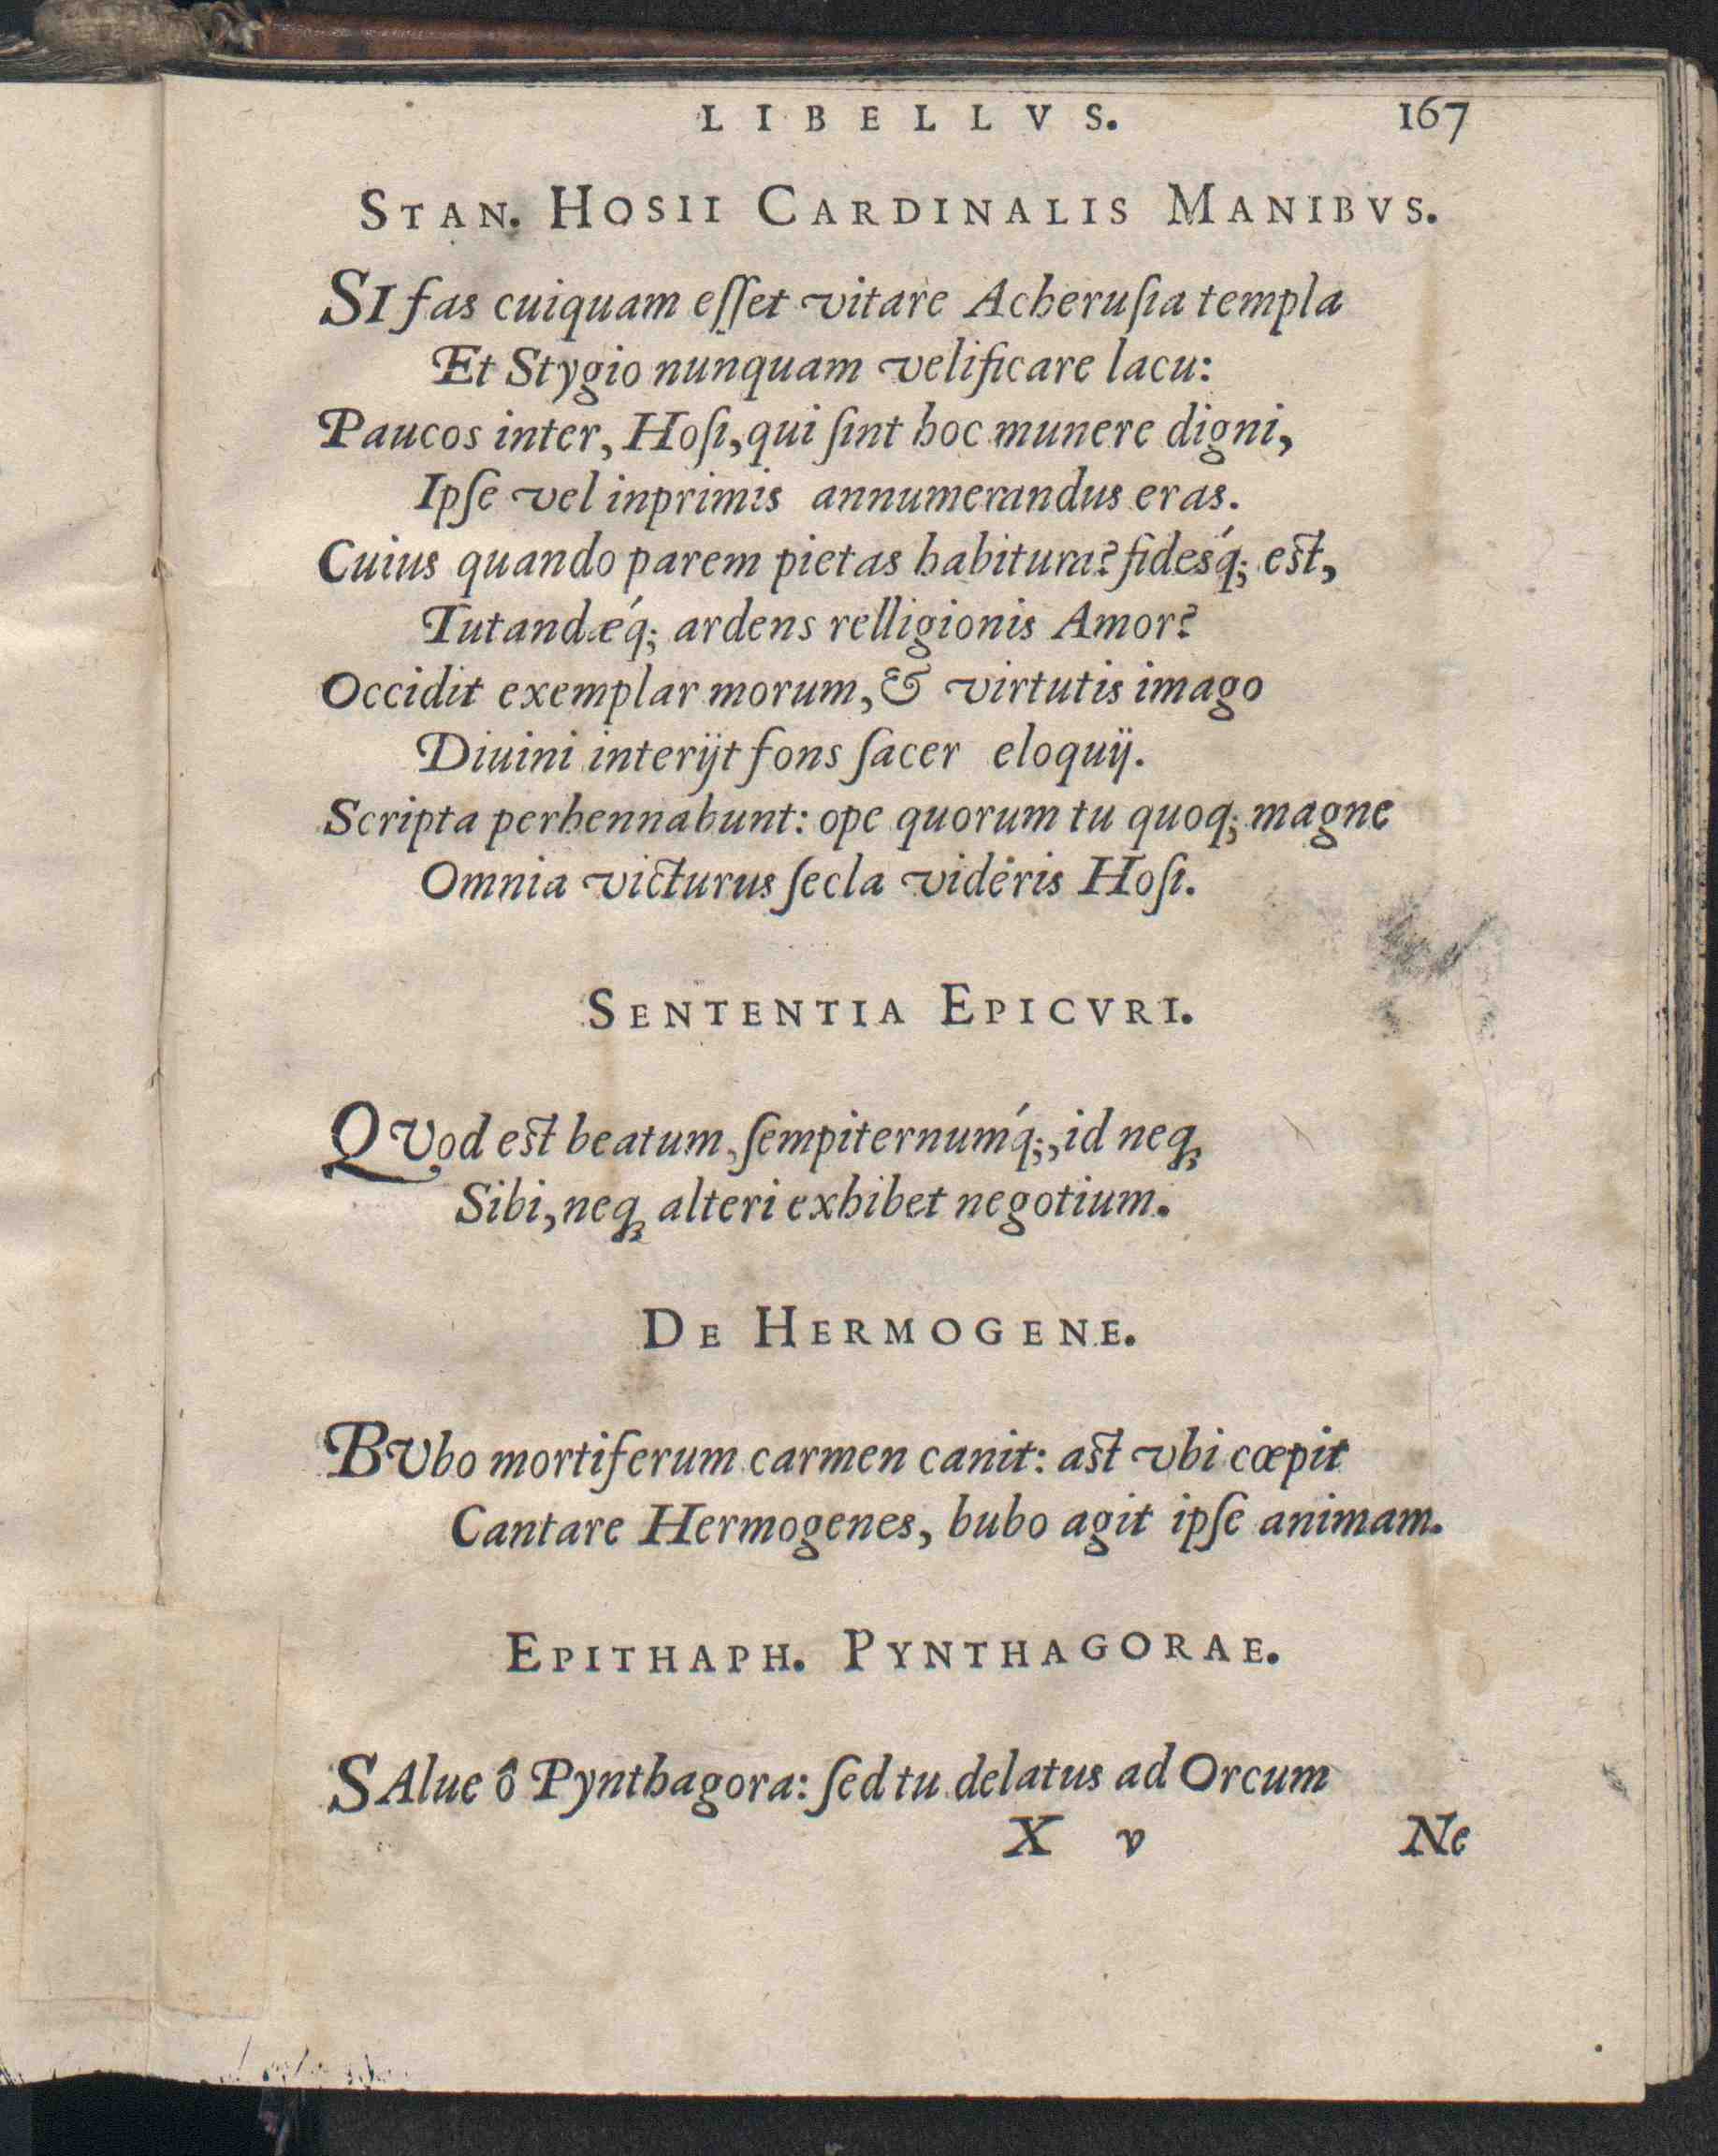 LIBELLVS. 167
STAN. HOSII CARDINALIS MANIBVS.
SI fas cuiquam eſſet vitare Acheruſia templa
Et Stygio nunquam velificare lacu:
Paucos inter, Hoſi, qui ſint hoc munere digni,
Ipſe vel inprimis annumerandus eras.
Cuius quando parem pietas habitura? fidesq́; est,
Tutandæq́; ardens relligionis Amor?
Occidit exemplar morum, & virtutis imago
Diuini interijt fons ſacer eloquij.
Scripta perhennabunt: ope quorum tu quoq; magne
Omnia victurus ſecla vidêris Hoſi.
SENTENTIA EPICVRI.
QVod est beatum, ſempiternumq́;, id neq;
Sibi, neq; alteri exhibet negotium.
DE HERMOGENE.
BVbo mortiferum carmen canit: ast vbi cœpit
Cantare Hermogenes, bubo agit ipſe animam.
EPITHAPH. PYNTHAGORAE.
SAlue ô Pynthagora: ſed tu delatus ad Orcum
X v Ne